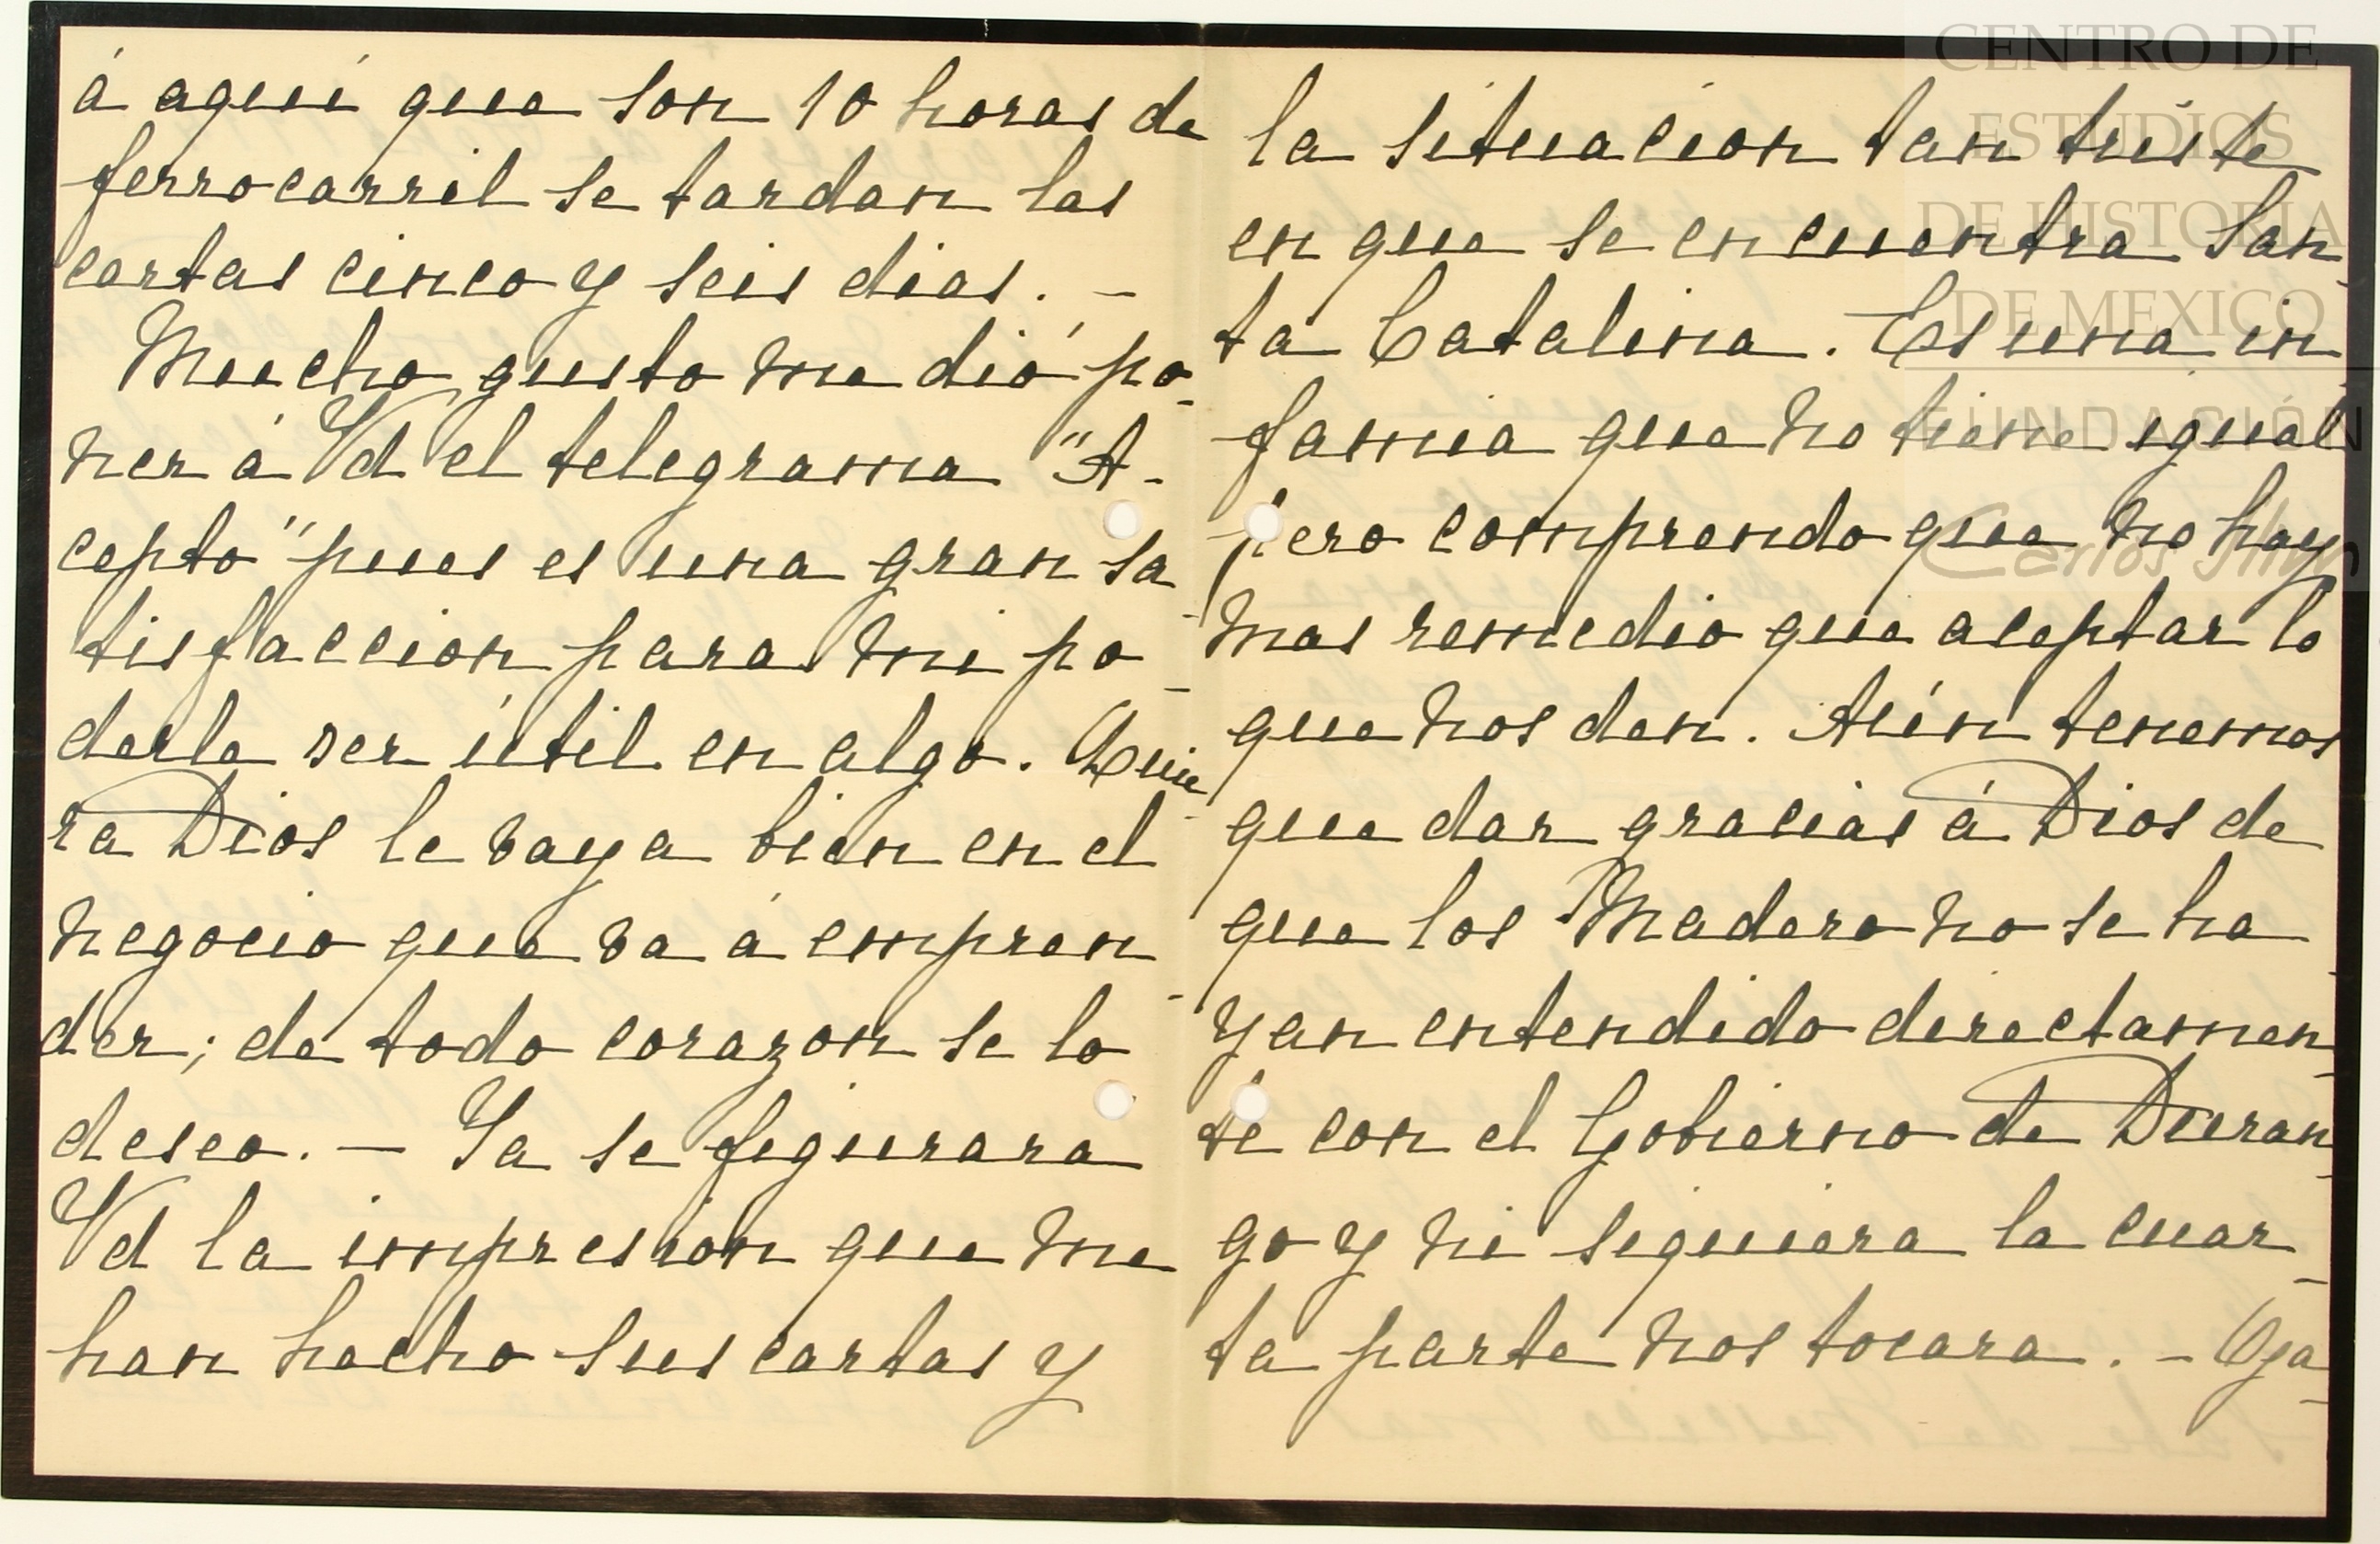 á aquí que son 10 horas de
ferrocarril se tardan las
cartas cinco y seis dias. -
Mucho gusto me dió po-
ner á Vd el telegrama "A-
cepto" pues es una gran sa-
tisfaccion para mi po-
derle ser útil en algo. Quie-
ra Dios le vaya bien en el
negocio que va á empren-
der; de todo corazon se lo
deseo. — Ya se figurara
Vd la impresión que me
han hecho sus cartas y
la situacion tan triste
en que se encuentra San-
ta Catalina. Es una in-
famia que no tiene igual
pero comprendo que no hay
mas remedio que aceptar lo
que nos den. Aún tenemos
que dar gracias á Dios de
que los Madero no se ha-
yan entendido directamen-
te con el Gobierno de Duran-
go y ni siquiera la cuar-
ta parte nos tocara. - Oja-
CENTRO DE
ESTUDIOS
DE HISTORIA
DE MEXICO
FUNDACIÓN
Carlos Slim